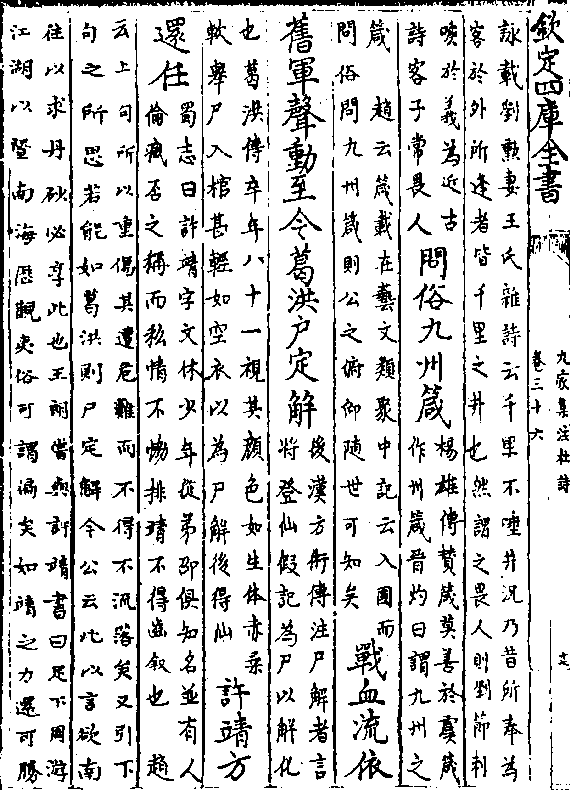 欽定四庫全書
詠載劉勲妻王氏雜詩云千里不唾井況乃昔所奉為
客於外所逢者皆千里之井也然謂之畏人則劉節刺
喚於義為近古
詩客子常畏人
問俗九州箴
楊雄傳贊箴莫善於虞箴
作州箴晉灼曰謂九州之
箴 趙云箴載在藝文類聚中記云入國而
問俗問九州箴則公之俯仰隨世可知矣
戰血流依
舊軍聲動至今葛洪尸定解
後漢方術傳注尸解者言
將登仙假記為尸以解化
也葛洪傳卒年八十一視其顔色如生体亦柔
軟舉尸入棺甚輕如空衣以為尸解後得仙
許靖方
還任
蜀志曰許靖字文休少年從弟卲俱知名並有人
倫臧否之稱而私情不恊排靖不得齒叙也 趙
云上句所以重傷其遭危難而不得不流落矣又引下
句之所思若能如葛洪則尸定解今公云此以言欲南
往以求丹砂必享此也王朗嘗與許靖書曰足下周游
江湖以暨南海歷觀夷俗可謂徧矣如靖之力還可勝
九家集注杜詩
卷三十六